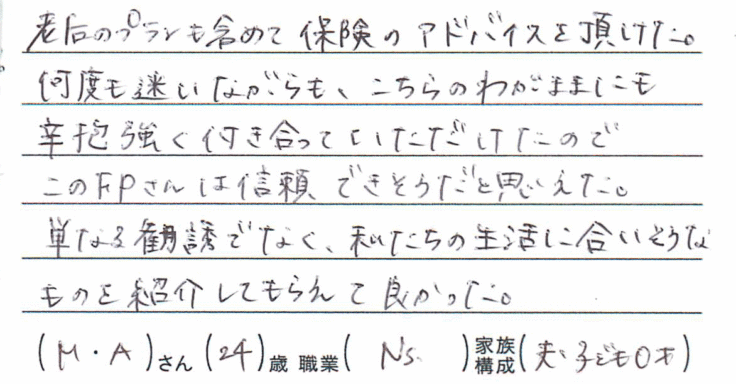 老后のプランも含めて保険のアドバイスを頂けた。
何度も迷いながらも、こちらのわがままにも
辛抱強く付き合っていただけたので
このFPさんは信頼できそうだと思えた。
単なる勧誘でなく、私たちの生活に合いそうな
ものを紹介してもらえて良かった。
(M・A)さん (24)歳 職業( Ns. )家族構成(夫、子ども0才)